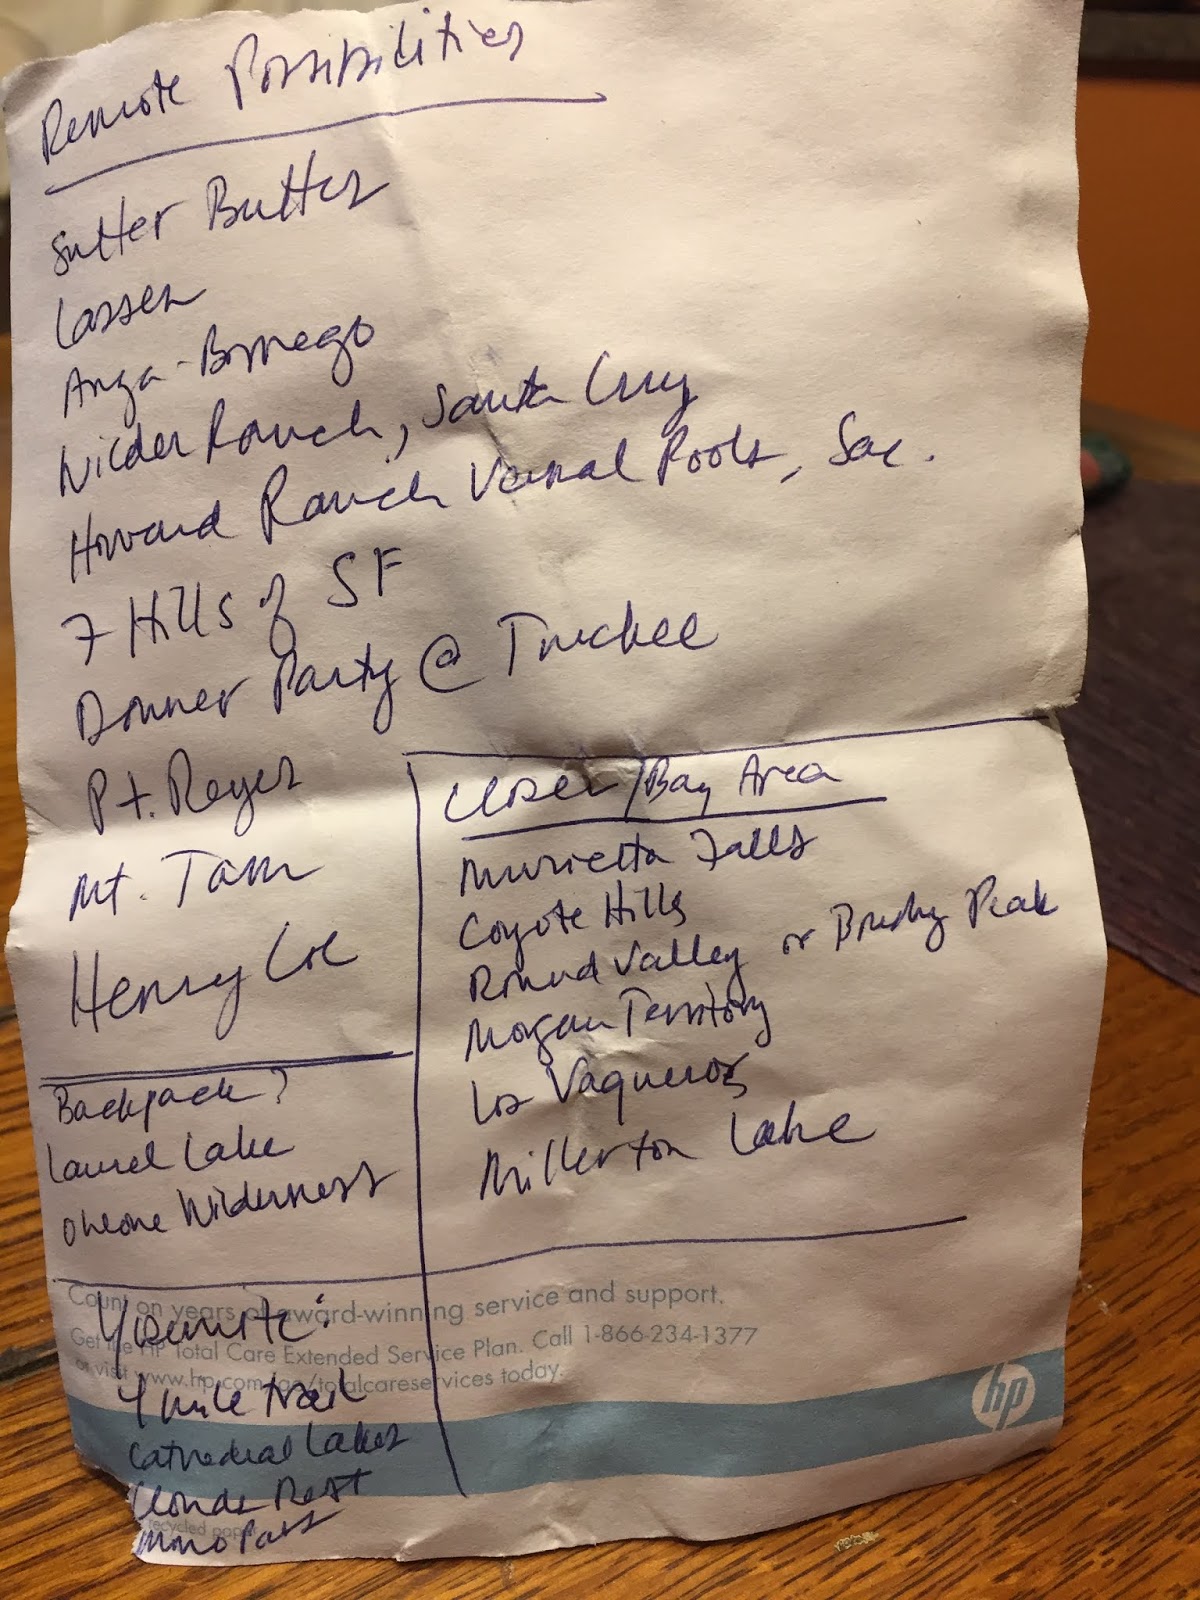 Remote Possibilities
Sutter Buttes
Lassen
Anza-Borrego
Wilder Ranch, Santa Cruz
Howard Ranch Vernal Pools, Sac.
7 Hills of SF
Donner Party @ Truckee
Pt. Reyes
Mt. Tam
Henry Coe
Backpack?
Laurel Lake
Ohlone Wilderness
Yosemite:
4 mile trail
Cathedral Lakes
Clouds Rest
Mono Pass
Closer/Bay Area
Murietta Falls
Coyote Hills
Round Valley or Brushy Peak
Morgan Territory
Los Vaqueros
Millerton Lake
Count on years of award-winning service and support.
Get the HP Total Care Extended Service Plan. Call 1-866-234-1377
or visit www.hp.com/go/totalcareservices today.
hp
recycled paper